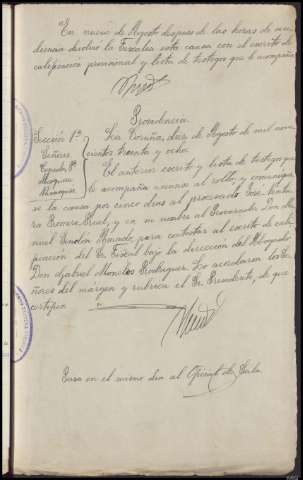 En nueve de Agosto despues de las horas de au-
diencia devolvió la Fiscalía esta causa con el escrito de
calificación provisional y lista de testigos que le acompaña
Providencia
Sección 1ª
Señores
La Coruña, diez de Agosto de mil nove
cientos treinta y ocho.
El anterior escrito y lista de testigos que
le acompaña unanse al rollo, y comuníque
se la causa por cinco dias al procesado José
Real, y en su nombre al Procurador Don Ma
nuel para contestar al escrito de cali-
ficación del Sr. Fiscal bajo la dirección del Abogado
Don Gabriel Rodríguez. Lo acordaron los Se
ñores del márgen y rubrica el Sr. Presidente, de que
certifico
Pasa en el mismo dia al Oficial de Sala